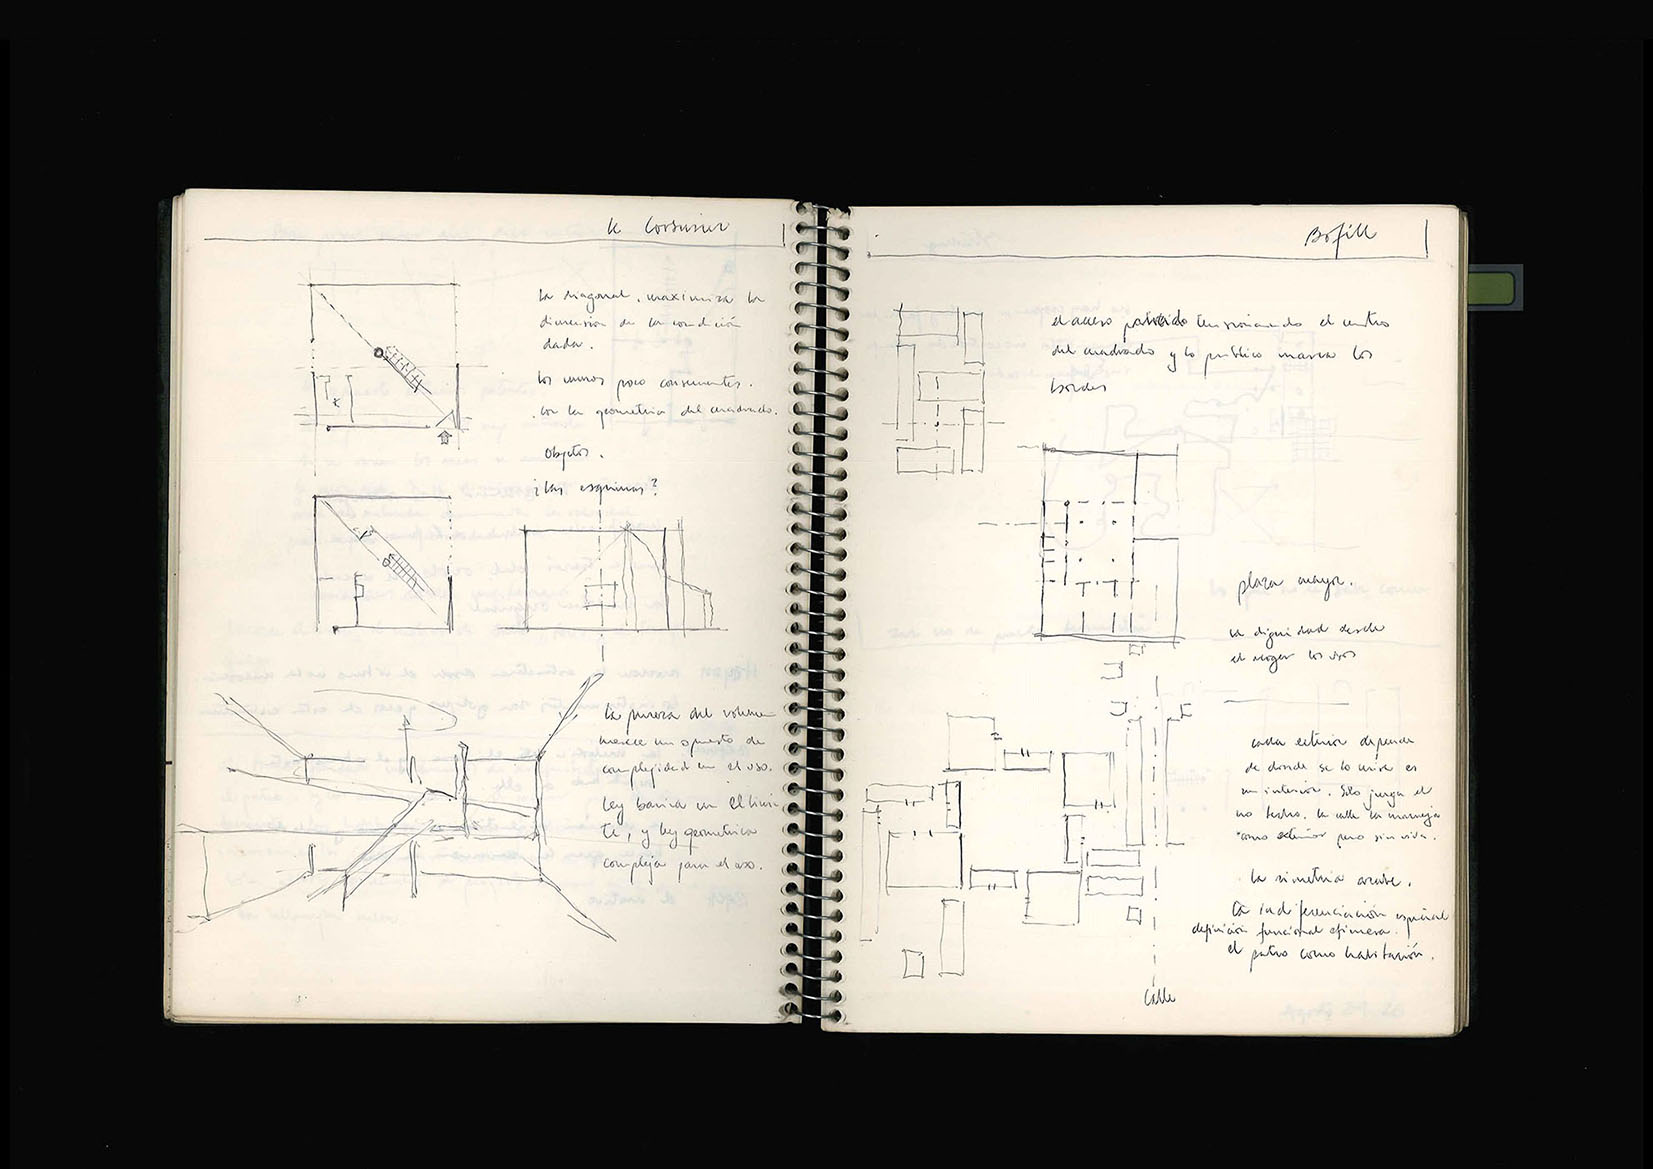 le Corbusier
la diagonal, maximiza la
dimension de la condición
dada.
los muros poco consecuentes.
con la geometria del cuadrado.
Objetos.
¿las esquinas?
la pureza del volumen
merece un opuesto de
complejidad en el uso.
ley basica en el limi
te, y ley geometrica
compleja para el uso.
Bofill
el acceso tensionando el centro
del cuadrado y lo publico marca los
bordes
plaza mayor.
la dignidad desde
el acoger los usos
cada exterior depende
de donde se lo mire es
un interior. Solo juega el
no techo. la calle la maneja
como exterior pero sin vida.
la simetria arabe.
la indiferenciación espacial
definición funcional efimera.
el patio como habitación.
Calle